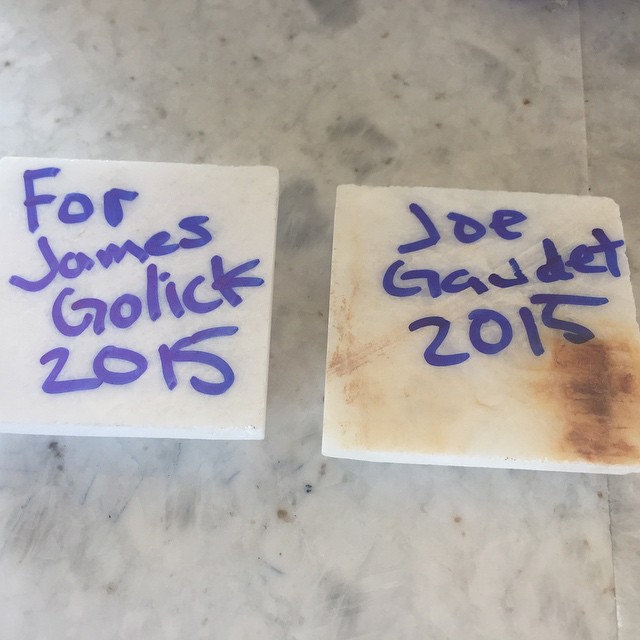 For
James
Golick
2015
Joe
Gaudet
2015